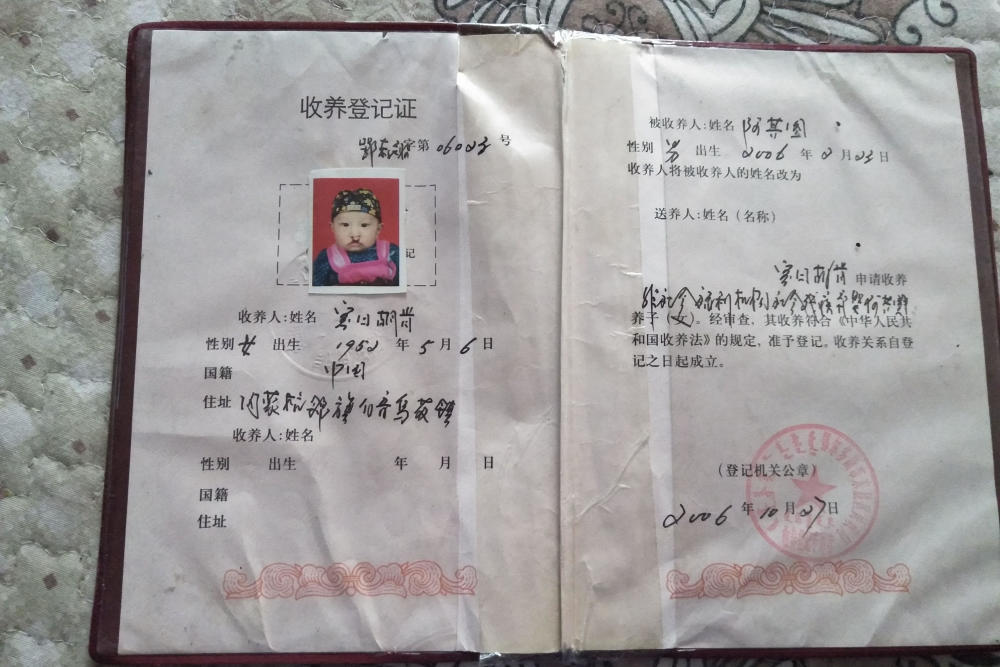 收养登记证
字第 06023 号
记
收养人:姓名 赛日胡肯
性别 女 出生 1952 年 5 月 6 日
国籍 中国
住址 内蒙杭锦旗
收养人:姓名
性别 出生 年 月 日
国籍
住址
被收养人:姓名 阿其图
性别 男 出生 2006 年 2 月 23 日
收养人将被收养人的姓名改为
送养人:姓名(名称)
赛日胡肯 申请收养
养子(女)。经审查,其收养符合《中华人民共
和国收养法》的规定,准予登记。收养关系自登
记之日起成立。
(登记机关公章)
2006 年 10 月 27 日